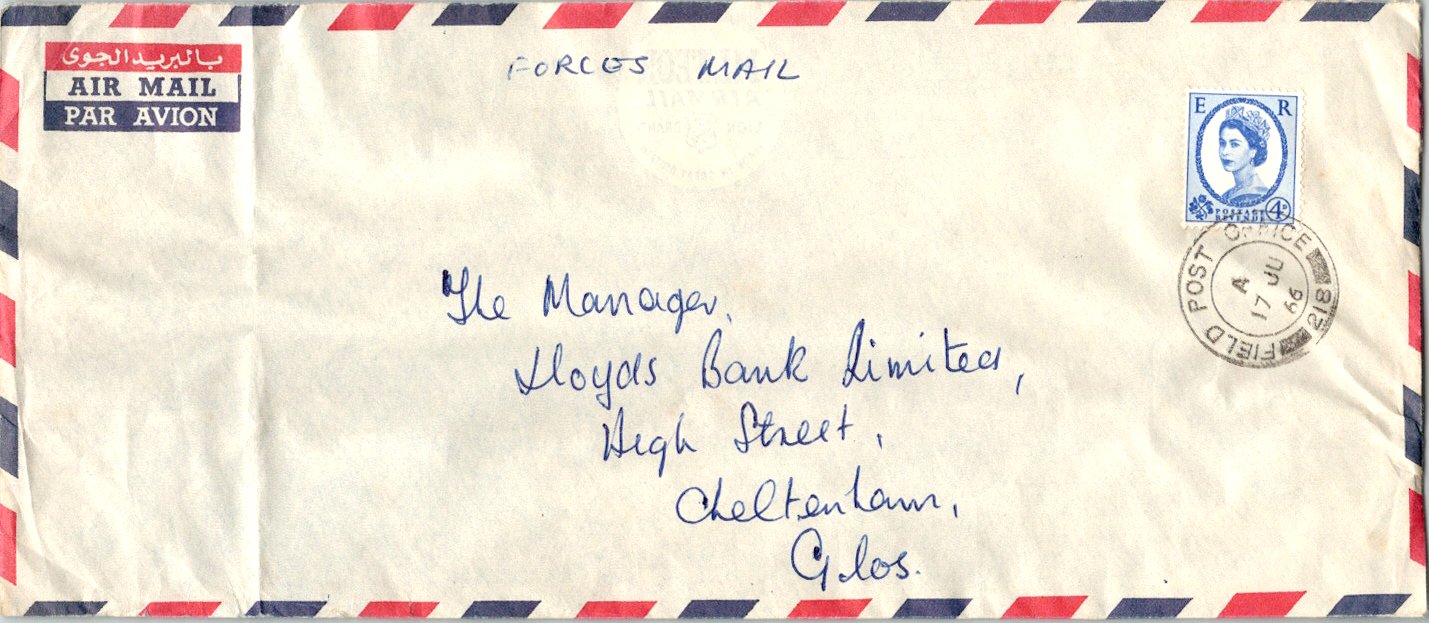 بالبريد الجوى
AIR MAIL
PAR AVION
FORCES MAIL
E R
POSTAGE
REVENUE
4D
FIELD POST OFFICE 218
A
17 JU
66
The Manager,
Lloyds Bank Limited,
High Street,
Cheltenham,
Glos.